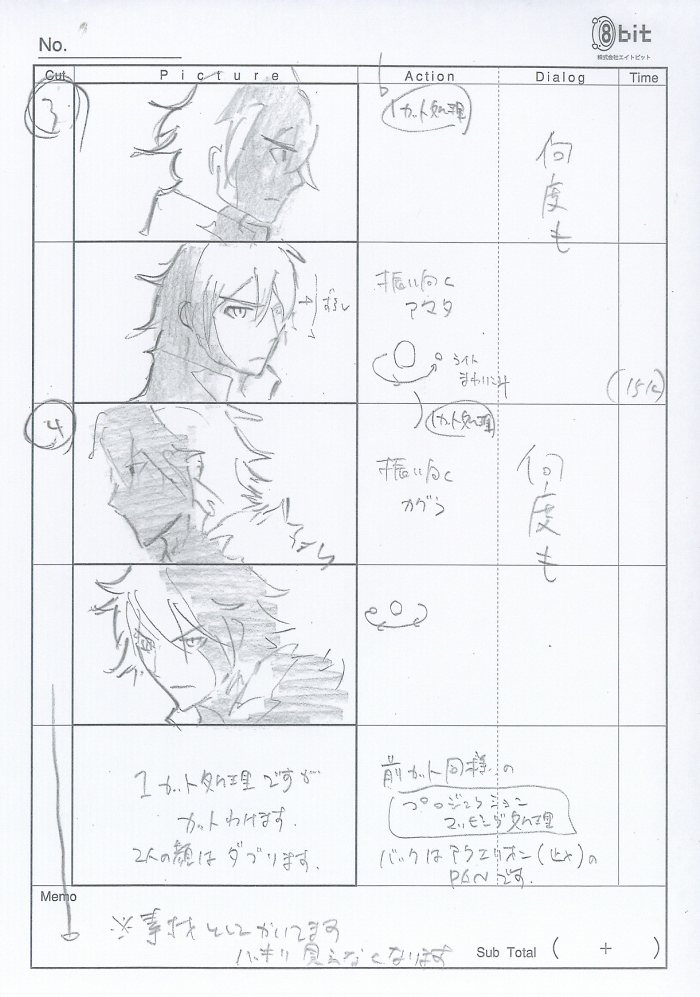 8bit
株式会社エイトビット
No.
Cut Picture Action Dialog Time
3
1カット処理
何度も
振り向く
アマタ
ずらし
ライト
まわりこみ
(15K)
4
1カット処理
振り向く
カグラ
何度も
1カット処理ですが
カットわけます.
2人の顔はダブります.
前カット同様.の
プロジェクション
マッピング処理
バックはアクエリオン(止メ)の
PANです.
Memo
※素材としてかいてます
ハッキリ見えなくなります
Sub Total ( + )